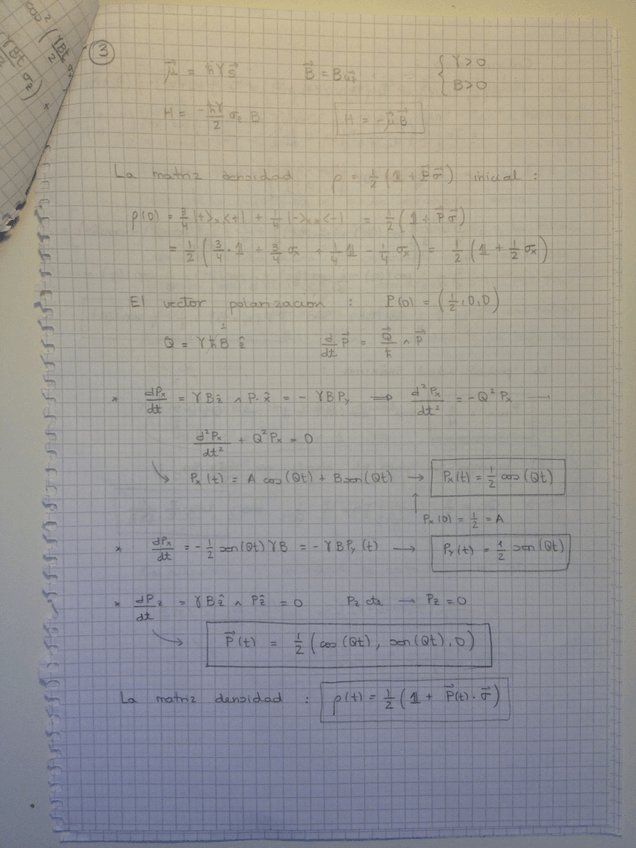 cos² (γBt/2
γBt/2 σz) *
③
μ⃗ = ħγs⃗ B⃗ = B { γ>0
B>0
H = -ħγ/2 σz B H = -μ⃗ B⃗
La matriz densidad ρ = 1/2 (𝟙 + P⃗σ⃗) inicial :
ρ(0) = 3/4 |+>ₓ<+| + 1/4 |->ₓₓ<-| = 1/2 (𝟙 + P⃗σ⃗)
= 1/2 (3/4 · 𝟙 + 3/4 σₓ + 1/4 𝟙 - 1/4 σₓ) = 1/2 (𝟙 + 1/2 σₓ)
El vector polarizacion : P(0) = (1/2, 0, 0)
Q = γħB ẑ d/dt P⃗ = Q⃗/ħ ∧ P⃗
* dPₓ/dt = γBẑ ∧ P·x̂ = - γBPy ⟶ d²Pₓ/dt² = -Q² Pₓ ⟶
d²Pₓ/dt² + Q² Pₓ = 0
↘ Pₓ(t) = A cos(Qt) + B sen(Qt) → Pₓ(t) = 1/2 cos(Qt)
Pₓ(0) = 1/2 = A
* dPₓ/dt = - 1/2 sen(Qt) γB = - γBPy(t) → Py(t) = 1/2 sen(Qt)
* dPz/dt = γBẑ ∧ Pẑ = 0 Pz cte → Pz = 0
↘ P⃗(t) = 1/2 (cos(Qt), sen(Qt), 0)
La matriz densidad : ρ(t) = 1/2 (𝟙 + P⃗(t)·σ⃗)